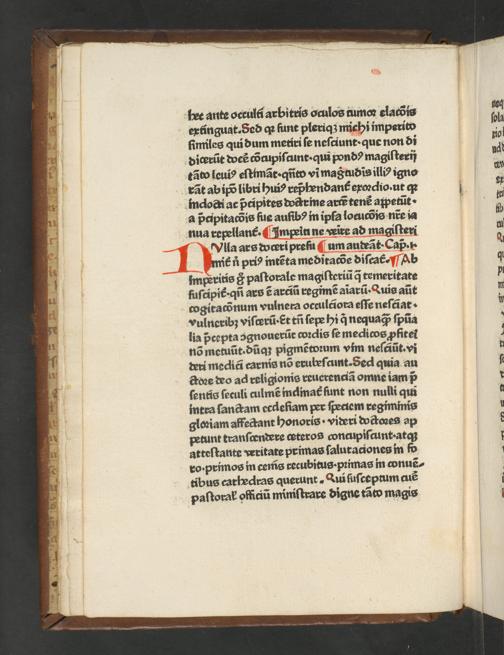 hec ante occulti arbitris oculos tumor elacōis
extinguat. Sed qꝛ sunt pleriqꝫ michi imperito
similes qui dum metiri se nesciunt· que non di
dicerūt docē cōcupiscunt· qui pondꝰ magisterij
tāto leuiꝰ estimāt· qñto vī magītudīs illiꝰ igno
rāt ab ip̄o libri huiꝰ rep̄hendanẗ exordio. ut qꝛ
indocti ac p̄cipites doctrine arcē tenē appetūt·
a p̄cipitacōis sue ausibꝰ in ipsa locucōis nr̄e ia
nua repellant̄. ¶Imperiti ne veīre ad magisteri
NUlla ars doceri presū ¶um audeāt. Cap. i·
mit̄ n̄ priꝰ intēta meditacōe discat̄. ¶Ab
imperitis g̊ pastorale magisteriū q̄ temeritate
suscipit̄· qn̄ ars ē arciū regimē aīarū. Quis aūt
cogitacōnum vulnera occulciora esse nesciat·
vulneribꝫ visceꝝ. Et tn̄ sepe hi q̄ nequaqꝫ spūa
lia p̄cepta ↄgnouerūt cordis se medicos ꝓfiteī
nō metuūt. dūqꝫ pigmētorum vim nesciūt. vi
deri medici carnis nō erubescunt. Sed quia au
ctore deo ad religionis reuerenciā omne iam p̄
sentis seculi culmē inclinat̄ sunt non nulli qui
intra sanctam ecclesiam per speciem regiminis
gloriam affectant honoris· videri doctores ap
petunt transcendere ceteros concupiscunt· atqꝫ
attestante veritate primas salutaciones in fo
ro· primos in cenis recubitus· primas in conuē-
tibus cathedras querunt. Qui susceptum curē
pastoral̄ officiū ministrare digne tāto magis